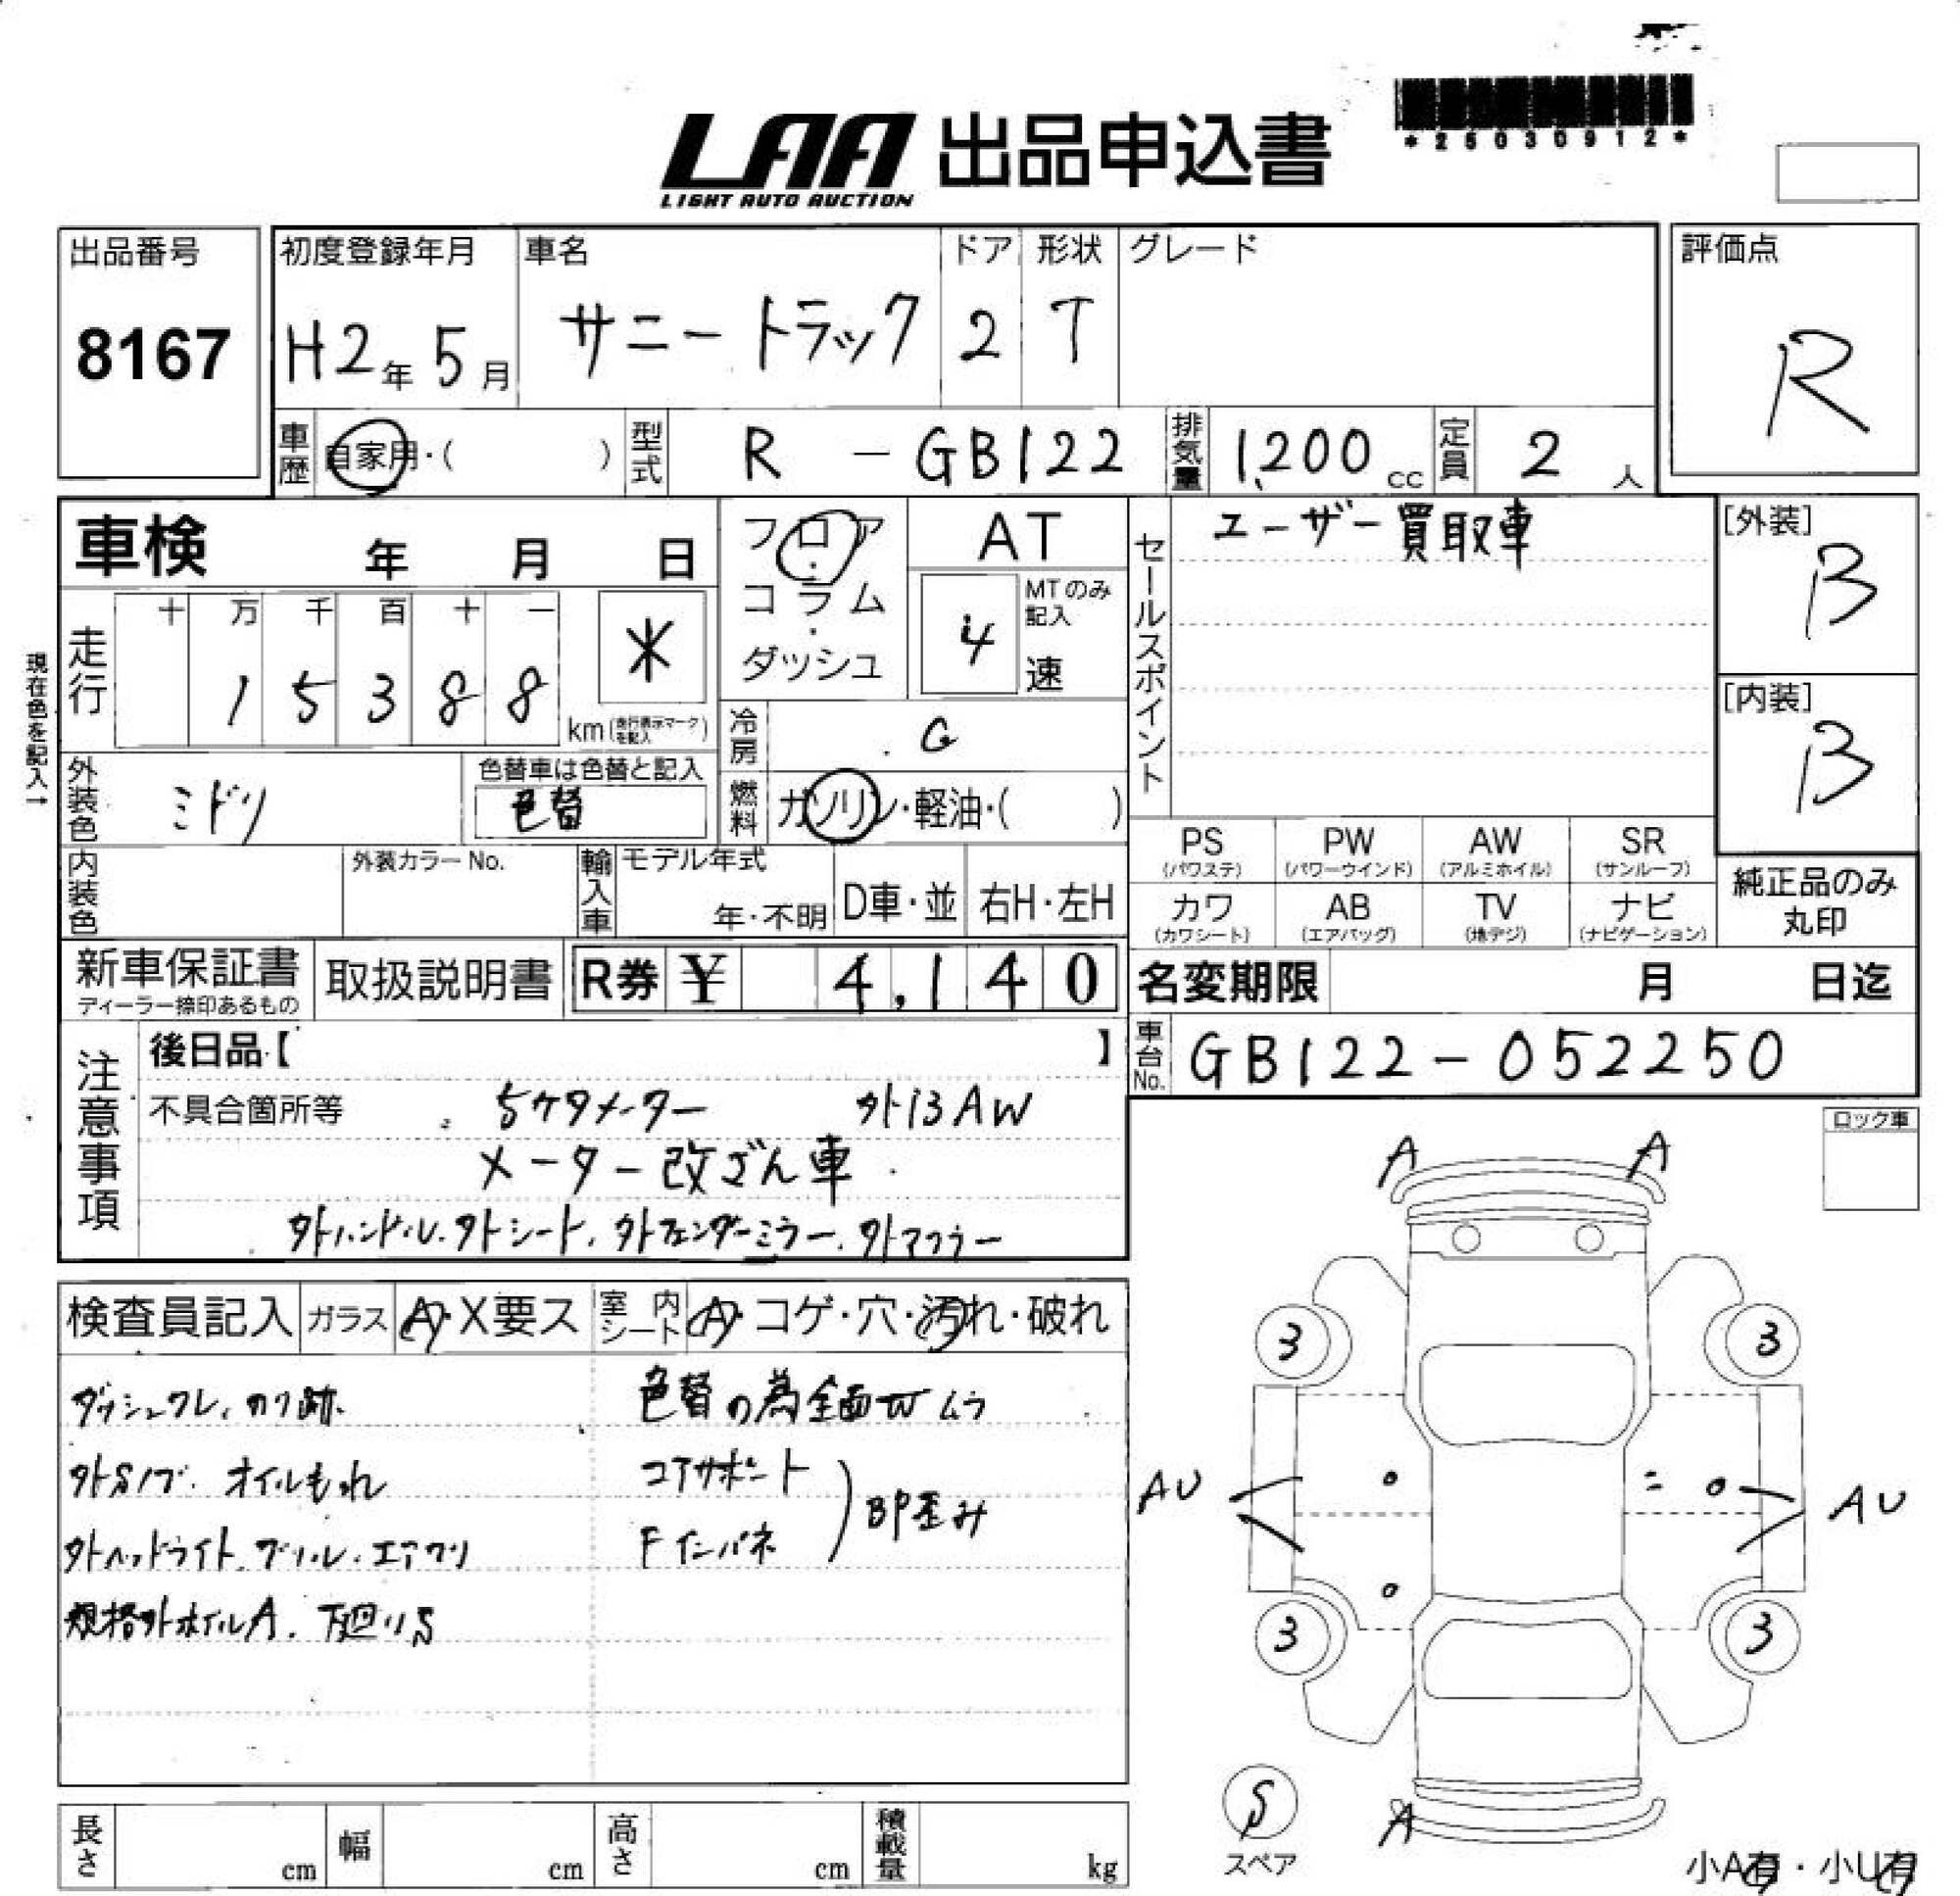 LAA 出品申込書
LIGHT AUTO AUCTION
*25030912*
出品番号
8167
初度登録年月
H2年 5月
車名
サニートラック
ドア
2
形状
T
グレード
評価点
R
車歴
自家用・( )
型式
R - GB122
排気量
1,200 cc
定員
2 人
車検 年 月 日
フロア・コラム・ダッシュ
AT
MTのみ記入
4 速
セールスポイント
ユーザー買取車
[外装]
B
[内装]
B
現在色を記入→
走行
十 万 千 百 十 一
1 5 3 8 8
km (走行表示マークを記入)
*
冷房
G
外装色
ミドリ
色替車は色替と記入
色替
燃料
ガソリン・軽油・( )
PS (パワステ)
PW (パワーウインド)
AW (アルミホイル)
SR (サンルーフ)
カワ (カワシート)
AB (エアバッグ)
TV (地デジ)
ナビ (ナビゲーション)
純正品のみ丸印
内装色
外装カラーNo.
輸入車
モデル年式
年・不明
D車・並
右H・左H
新車保証書
ディーラー捺印あるもの
取扱説明書
R券 ¥ 4,140
名変期限 月 日迄
車台No.
GB122-052250
注意事項
後日品【 】
不具合箇所等 5ケタメーター 外13AW
メーター改ざん車
外ハンドル、外シート、外フェンダーミラー、外マフラー
ロック車
検査員記入
ガラス
A・X要ス
室内シート
A・コゲ・穴・汚れ・破れ
ダッシュワレ、のり跡
外Sノブ、オイルもれ
外ヘッドライト、グリル、エアクリ
規格外ホイルA、下廻りS
色替の為全面Wムラ
コアサポート
Fインパネ
BP歪み
A
A
3
3
AU
AU
3
3
S
スペア
A
小A有・小U有
長さ cm
幅 cm
高さ cm
積載量 kg